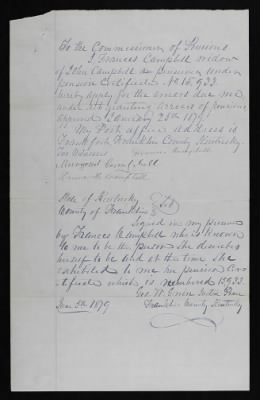 To the Commissioner of Pensions
I Frances Campbell widow
of John Campbell a pensioner under
pension Certificate No 15,933
hereby apply for the arrears due me
under act granting arrears of pensions
approved January 25th 1879
My Post office address is
Frankfort Franklin County Kentucky.
Two Witnesses Frances Campbell
Margaret Campbell
Campbell
State of Kentucky
County of Franklin Sct
Signed in my presence
by Frances Campbell who is known
to me to be the person she describes
herself to be and at the time she
exhibited to me her pension Cer
tificate which is numbered 15933.
Geo. W. Gwin
June 5th 1879 Franklin County Kentucky